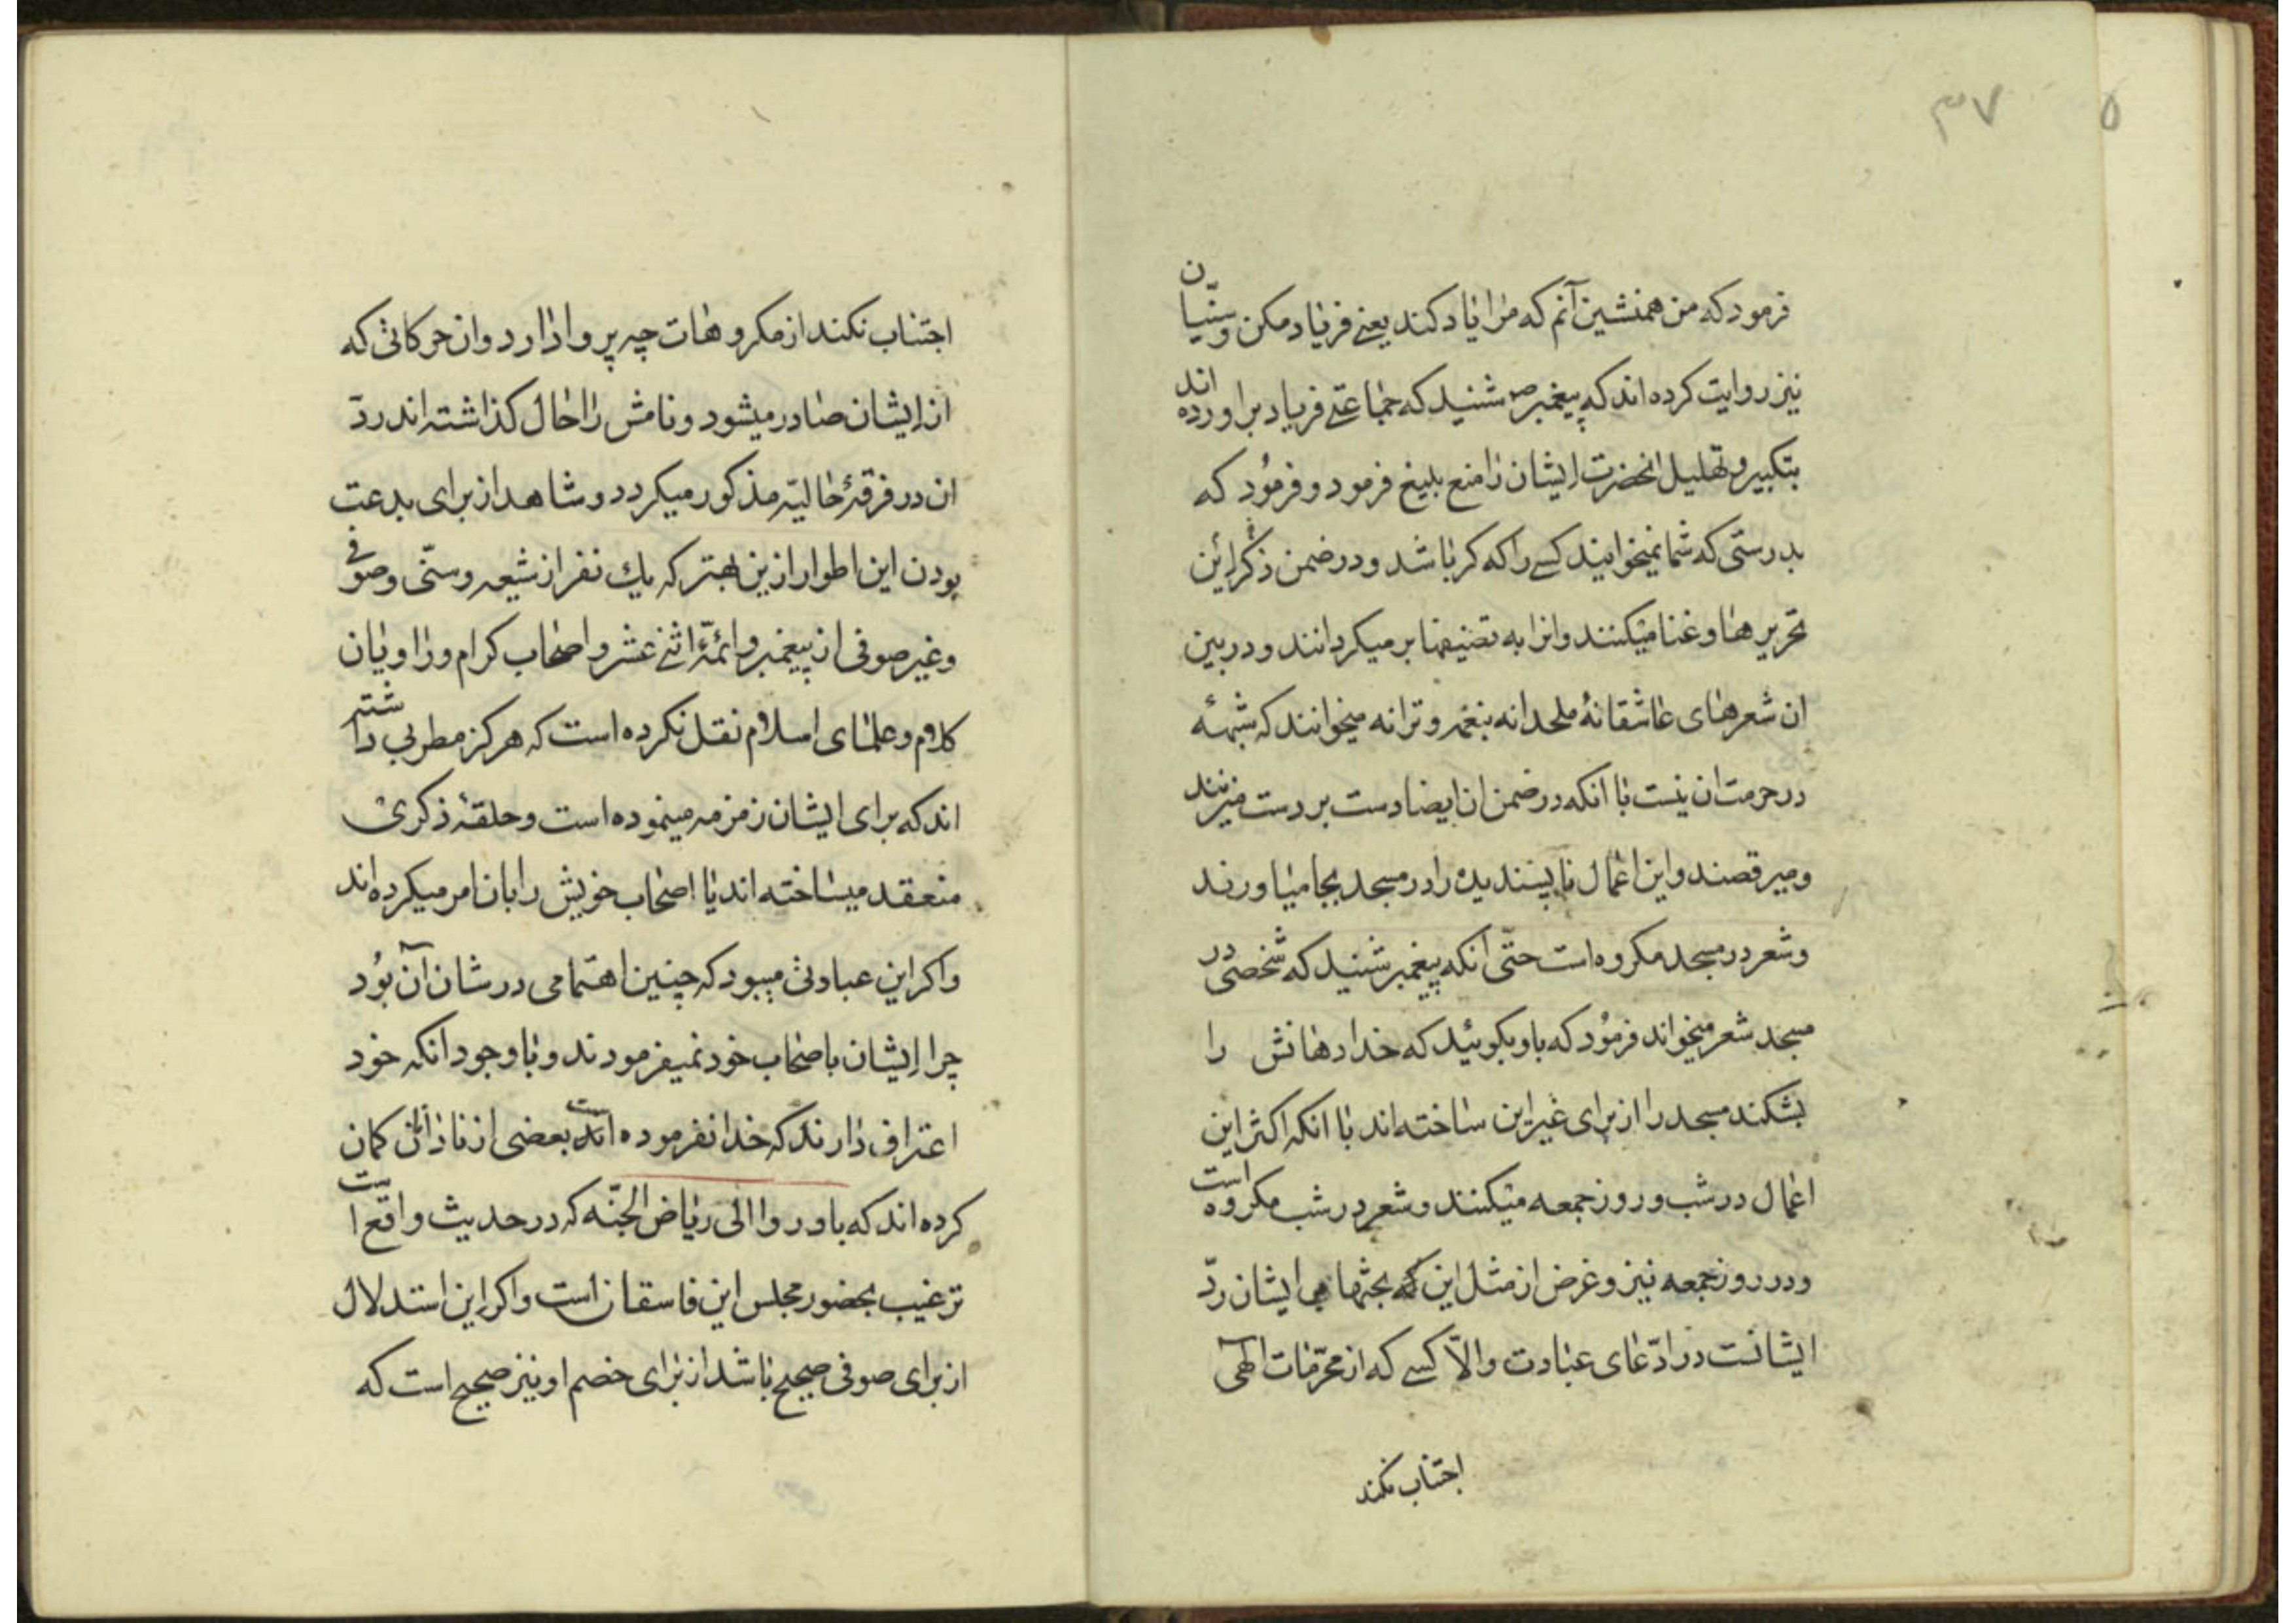 ۳۷
۵
فرمود که من همنشین آنم که مرا یاد کند یعنے فریاد مکن و سنّیان
نیز روایت کرده اند که پیغمبر ص شنید که جماعتے فریاد براورده اند
بتکبیر و تهلیل انحضرت ایشان را منع بلیغ فرمود و فرمُود که
بدرستی که شما نمیخوانید کسے را که کر باشد و در ضمن ذکر این
تحریرها و غنا میکنند وانرا به تصنیفها بر میکردانند و در بین
ان شعرهای عاشقانهٔ ملحدانه بنغمه و ترانه میخوانند که شبههٔ
در حرمت ان نیست با انکه در ضمن ان ایضا دست بر دست میزنند
و میرقصند و این اعمال ناپسندیده را در مسجد بجا میاورند
و شعر در مسجد مکروه است حتّی انکه پیغمبر شنید که شخصی در
مسجد شعر میخواند فرمُود که باو بکوئید که خدا دهانش را
بشکند مسجد را از برای غیر این ساخته اند با انکه اکثر این
اعمال در شب و روز جمعه میکنند و شعر در شب مکروه است
ودر روز جمعه نیز و غرض از مثل این که بحثها بر ایشان ردّ
ایشانست در ادّعای عبادت والّا کسے که از محرّمات الٓهی
اجتناب نکند
اجتناب نکند از مکروهات چه پروا دارد وان حرکاتی که
از ایشان صادر میشود و نامش را حال کذاشته اند ردّ
ان در فرقهٔ حالیّه مذکور میکردد و شاهد از برای بدعت
بودن این اطوار ازین بهتر که یك نفر از شیعه و سنّی و صوفے
و غیر صوفی از پیغمبر و ائمّهٔ اثنے عشر و اصحاب کرام و راویان
کلام و علمای اسلام نقل نکرده است که هرکز مطربی داشته
اند که برای ایشان زمزمه مینموده است و حلقهٔ ذکری
منعقد میساخته اند یا اصحاب خویش را بان امر میکرده اند
واکر این عبادتی میبود که چنین اهتمامی در شان آن بُود
چرا ایشان باصحاب خود نمیفرمودند و با وجود انکه خود
اعتراف دارند که خدا نفرموده است بعضی از نادانان کمان
کرده اند که بادروا الی ریاض الجنّه که در حدیث واقع است
ترغیب بحضور مجلس این فاسقان است واکر این استدلال
از برای صوفی صحیح باشد از برای خصم او نیز صحیح است که